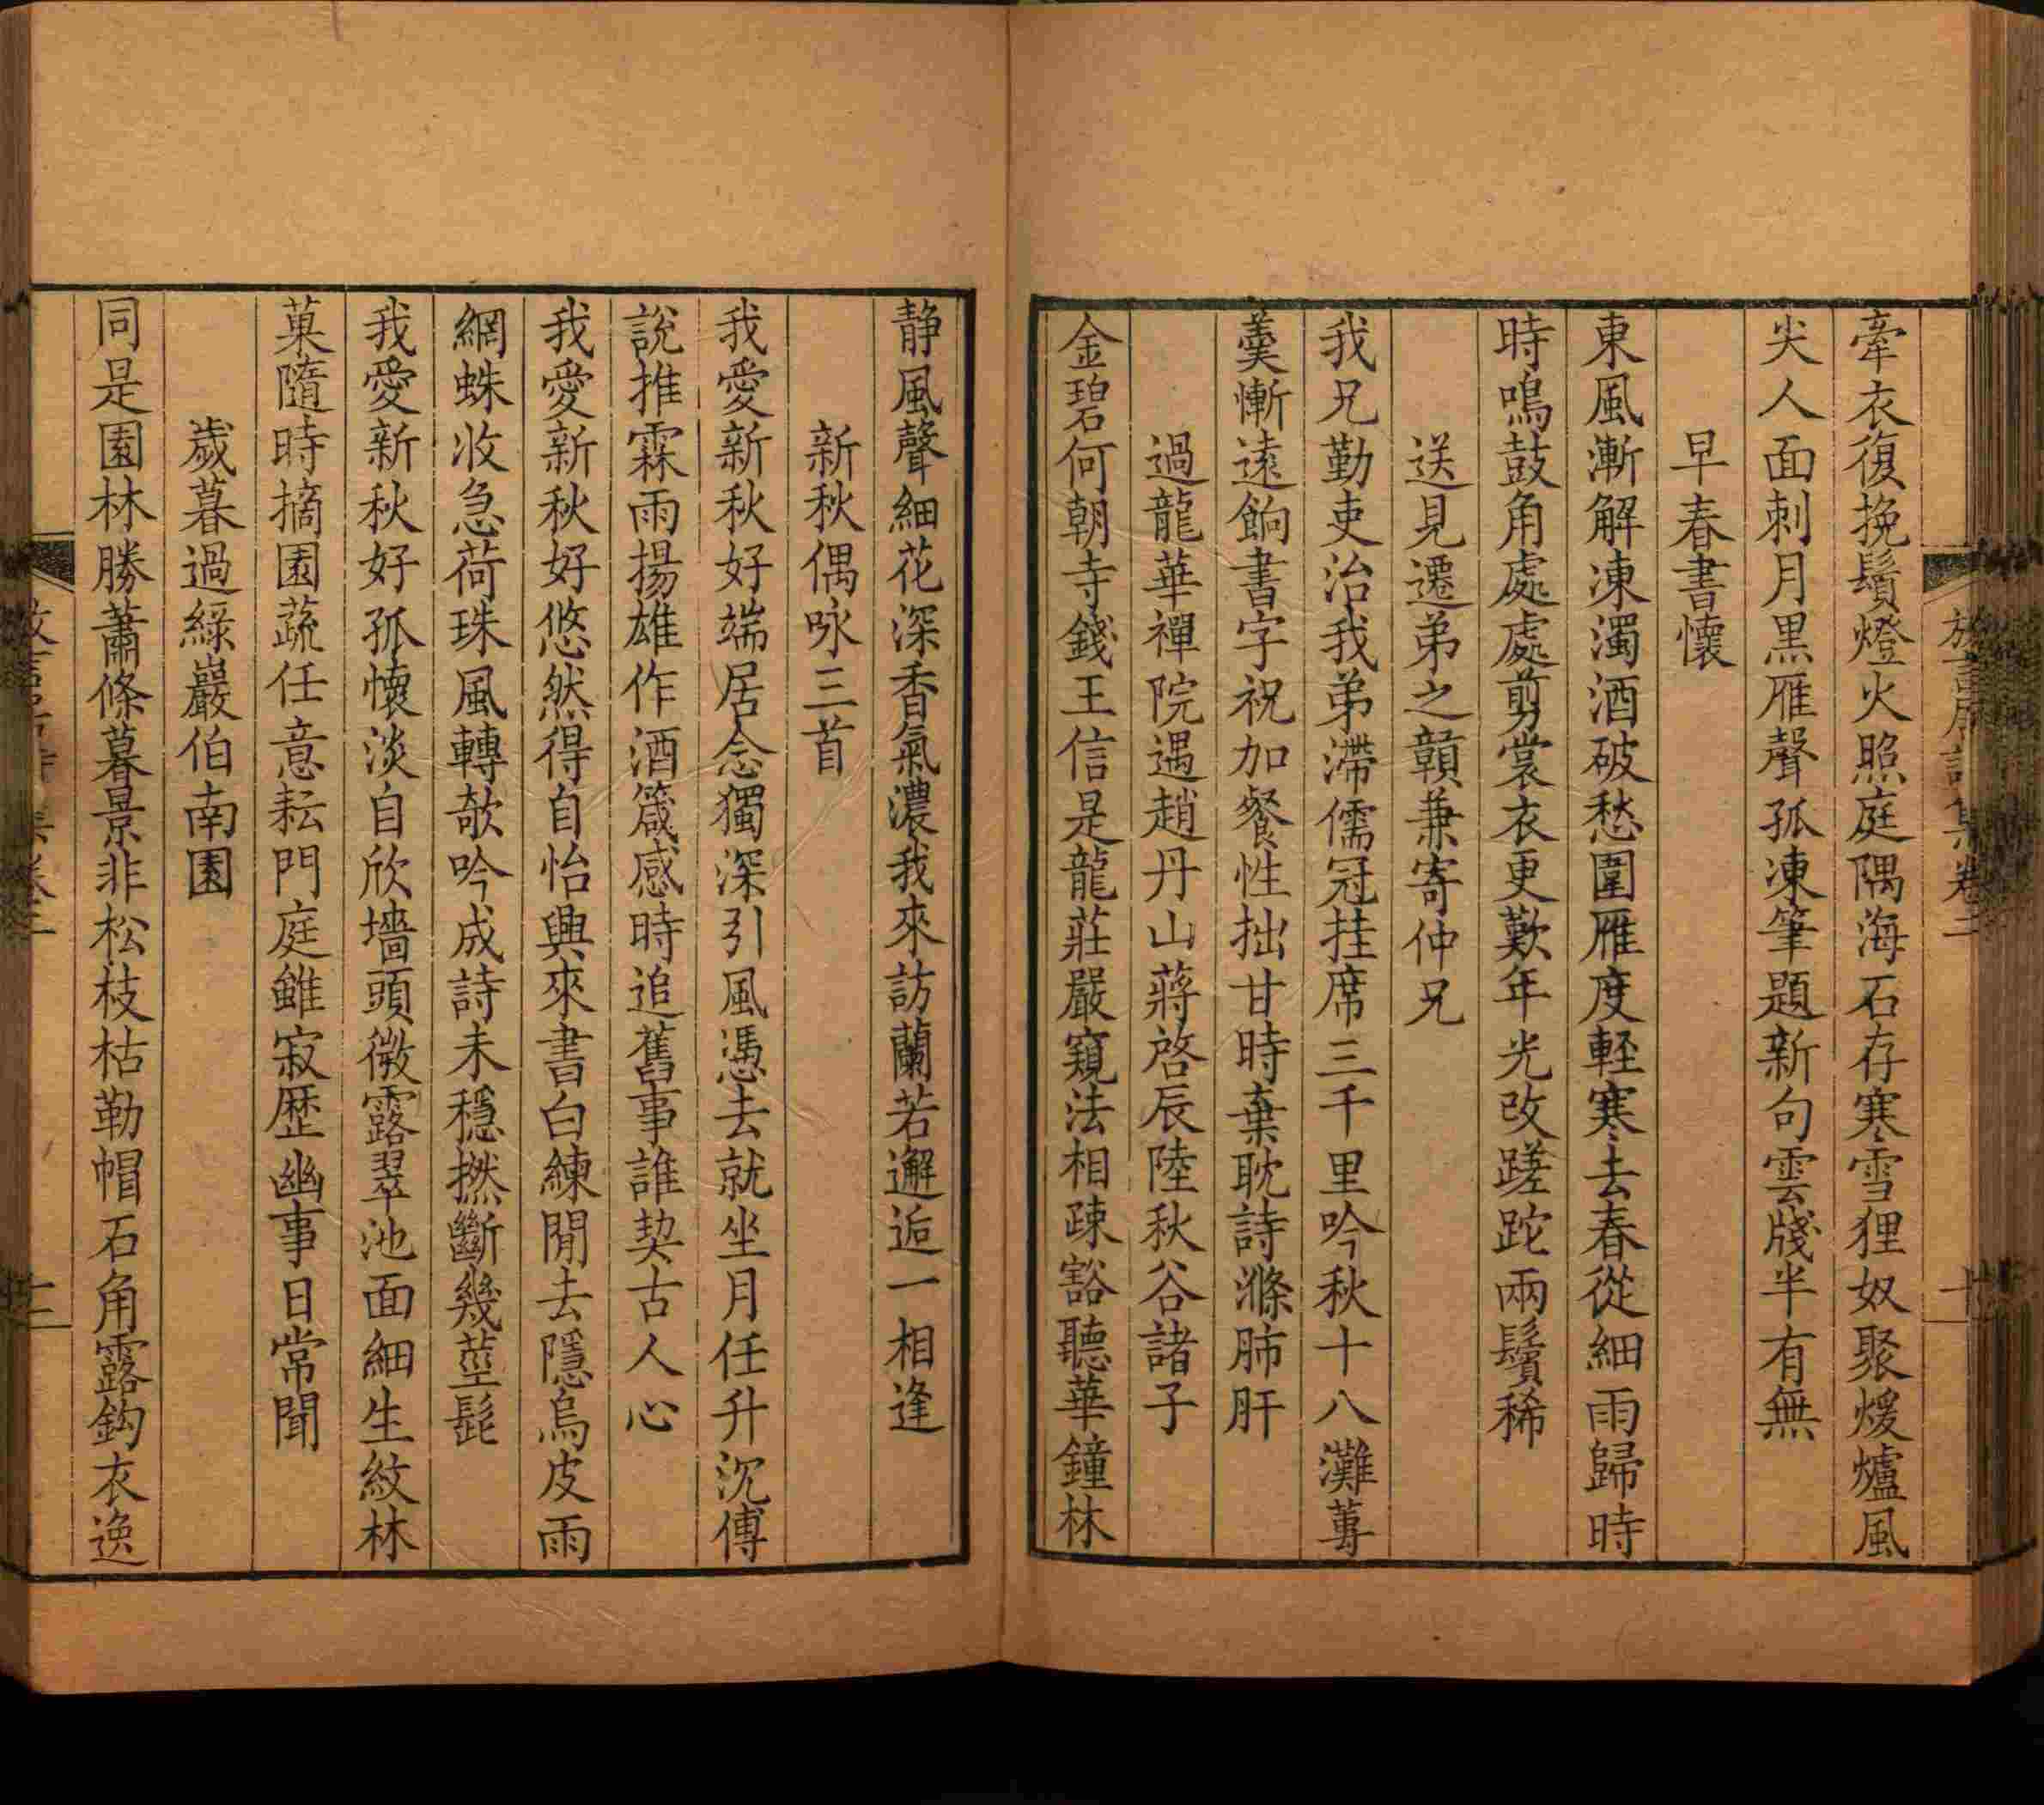 牽衣復挽鬚燈火照庭隅海石存寒雪狸奴聚煖爐風
尖人面刺月黒雁聲孤凍筆題新句雲牋半有無
早春書懷
東風漸解凍濁酒破愁圍雁度輕寒去春從細雨歸時
時鳴鼓角處處剪裳衣更歎年光改蹉跎兩鬢稀
送見遷弟之贛兼寄仲兄
我兄勤吏治我弟滯儒冠挂席三千里吟秋十八灘蓴
羹慚遠餉書字祝加餐性拙甘時棄耽詩滌肺肝
過龍華禪院遇趙丹山蔣啓辰陸秋谷諸子
金碧何朝寺錢王信是龍莊嚴窺法相疎豁聽華鐘林
靜風聲細花深香氣濃我來訪蘭若邂逅一相逢
新秋偶咏三首
我愛新秋好端居念獨深引風憑去就坐月任升沉傅
說推霖雨揚雄作酒箴感時追舊事誰契古人心
我愛新秋好悠然得自怡興來書白練閒去隱烏皮雨
網蛛收急荷珠風轉欹吟成詩未穩撚斷幾莖髭
我愛新秋好孤懷淡自欣墻頭微露翠池面細生紋林
菓隨時摘園蔬任意耘門庭雖寂歴幽事日常聞
歲暮過綠巖伯南園
同是園林勝蕭條暮景非松枝枯勒帽石角露鈎衣逸